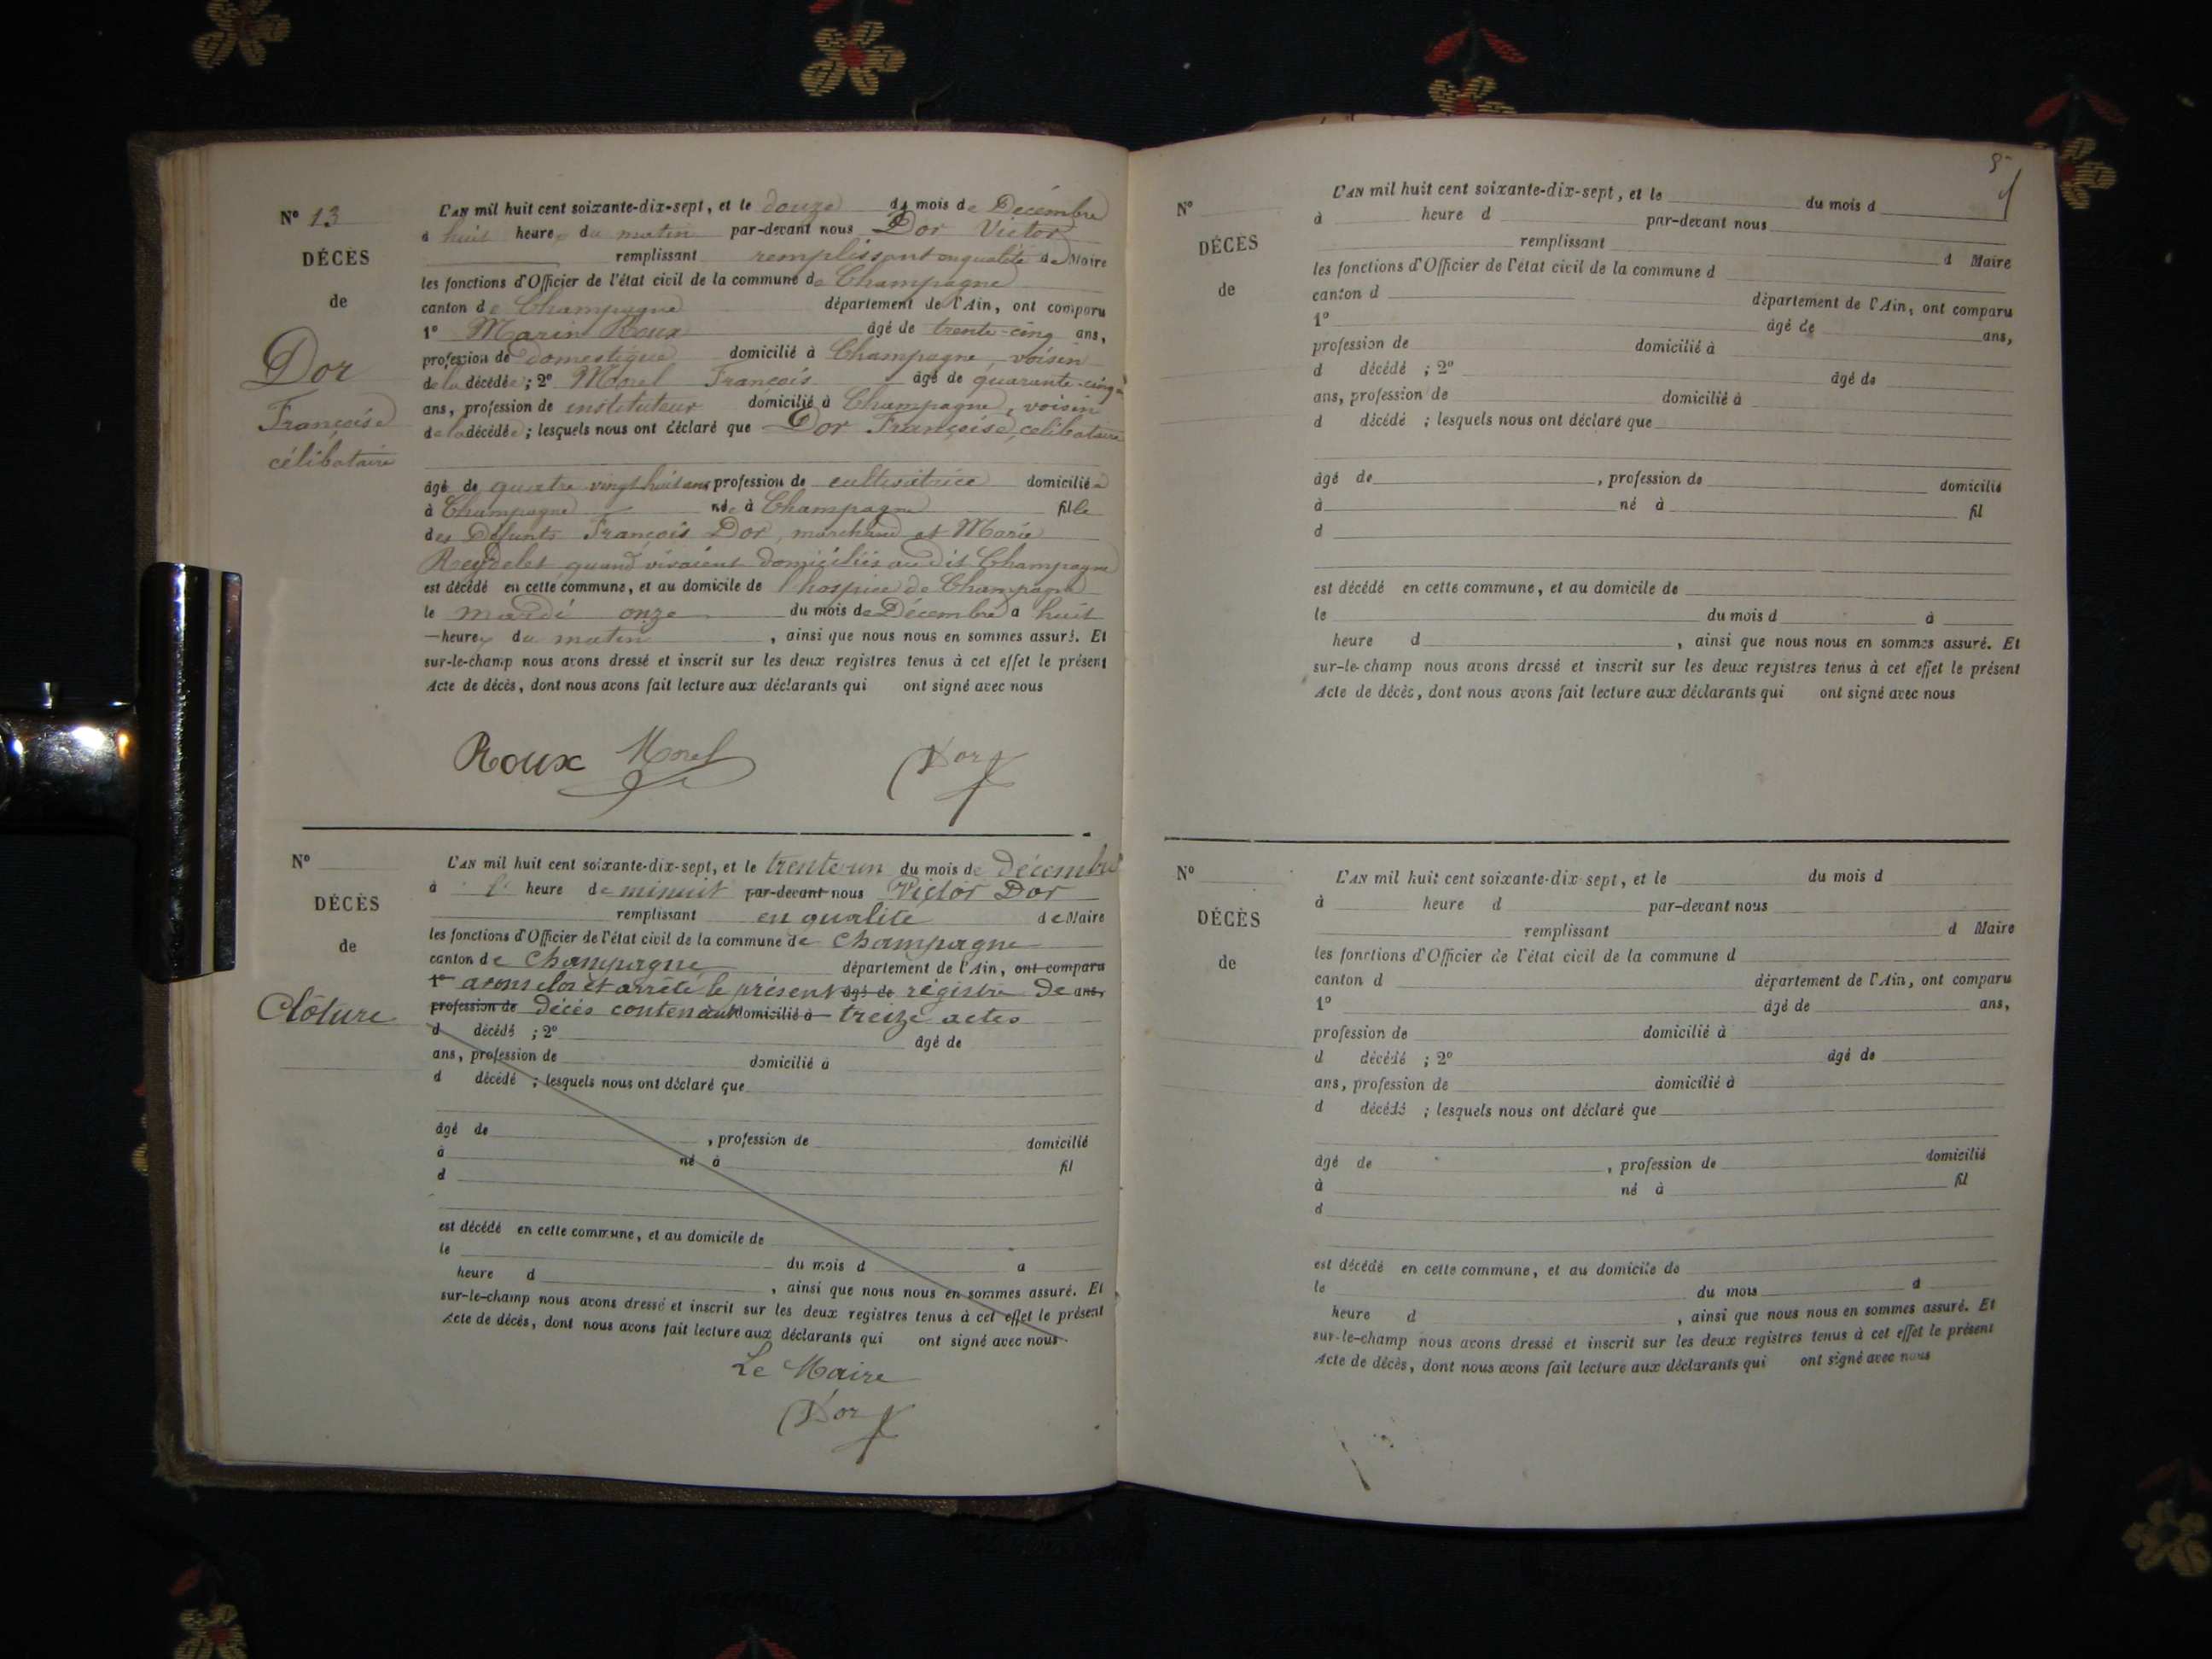 N° 13
DÉCÈS
de
Dor
Françoise
célibataire
L'AN mil huit cent soixante-dix-sept, et le douze du mois de Décembre
à huit heures du matin par-devant nous Dor Victor
remplissant remplissant en qualité de Maire
les fonctions d'Officier de l'état civil de la commune de Champagne
canton de Champagne département de l'Ain, ont comparu
1° Marin Roux âgé de trente-cinq ans,
profession de domestique domicilié à Champagne, voisin
de la décédée; 2° Morel François âgé de quarante-cinq
ans, profession de instituteur domicilié à Champagne, voisin
de la décédée; lesquels nous ont déclaré que Dor Françoise, célibataire
âgé de quatre vingt huit ans profession de cultivatrice domiciliée
à Champagne née à Champagne fille
des Défunts François Dor, marchand et Marie
Reydelet quand vivaient domiciliés au dit Champagne
est décédé en cette commune, et au domicile de l'hospice de Champagne
le mardi onze du mois de Décembre à huit
heures du matin, ainsi que nous nous en sommes assuré. Et
sur-le-champ nous avons dressé et inscrit sur les deux registres tenus à cet effet le présent
Acte de décès, dont nous avons fait lecture aux déclarants qui ont signé avec nous
Roux Morel Dor
N°
DÉCÈS
de
Clôture
L'AN mil huit cent soixante-dix-sept, et le trente-un du mois de décembre
à l' heure de minuit par-devant nous Victor Dor
remplissant en qualité de Maire
les fonctions d'Officier de l'état civil de la commune de Champagne
canton de Champagne département de l'Ain, ont comparu
1° avons clos et arrêté le présent âgé de régistre De ans,
profession de décès contenant domicilié à treize actes
d décédé ; 2° âgé de
ans, profession de domicilié à
d décédé ; lesquels nous ont déclaré que
âgé de , profession de domicilié
à né à fil
d
est décédé en cette commune, et au domicile de
le du mois d à
heure d , ainsi que nous nous en sommes assuré. Et
sur-le-champ nous avons dressé et inscrit sur les deux registres tenus à cet effet le présent
Acte de décès, dont nous avons fait lecture aux déclarants qui ont signé avec nous
Le Maire
Dor
N°
DÉCÈS
de
L'AN mil huit cent soixante-dix-sept, et le du mois d
à heure d par-devant nous
remplissant d Maire
les fonctions d'Officier de l'état civil de la commune d
canton d département de l'Ain, ont comparu
1° âgé de ans,
profession de domicilié à
d décédé ; 2° âgé de
ans, profession de domicilié à
d décédé ; lesquels nous ont déclaré que
âgé de , profession de domicilié
à né à fil
d
est décédé en cette commune, et au domicile de
le du mois d à
heure d , ainsi que nous nous en sommes assuré. Et
sur-le-champ nous avons dressé et inscrit sur les deux registres tenus à cet effet le présent
Acte de décès, dont nous avons fait lecture aux déclarants qui ont signé avec nous
N°
DÉCÈS
de
L'AN mil huit cent soixante-dix sept, et le du mois d
à heure d par-devant nous
remplissant d Maire
les fonctions d'Officier de l'état civil de la commune d
canton d département de l'Ain, ont comparu
1° âgé de ans,
profession de domicilié à
d décédé ; 2° âgé de
ans, profession de domicilié à
d décédé ; lesquels nous ont déclaré que
âgé de , profession de domicilié
à né à fil
d
est décédé en cette commune, et au domicile de
le du mois à
heure d , ainsi que nous nous en sommes assuré. Et
sur-le-champ nous avons dressé et inscrit sur les deux registres tenus à cet effet le présent
Acte de décès, dont nous avons fait lecture aux déclarants qui ont signé avec nous